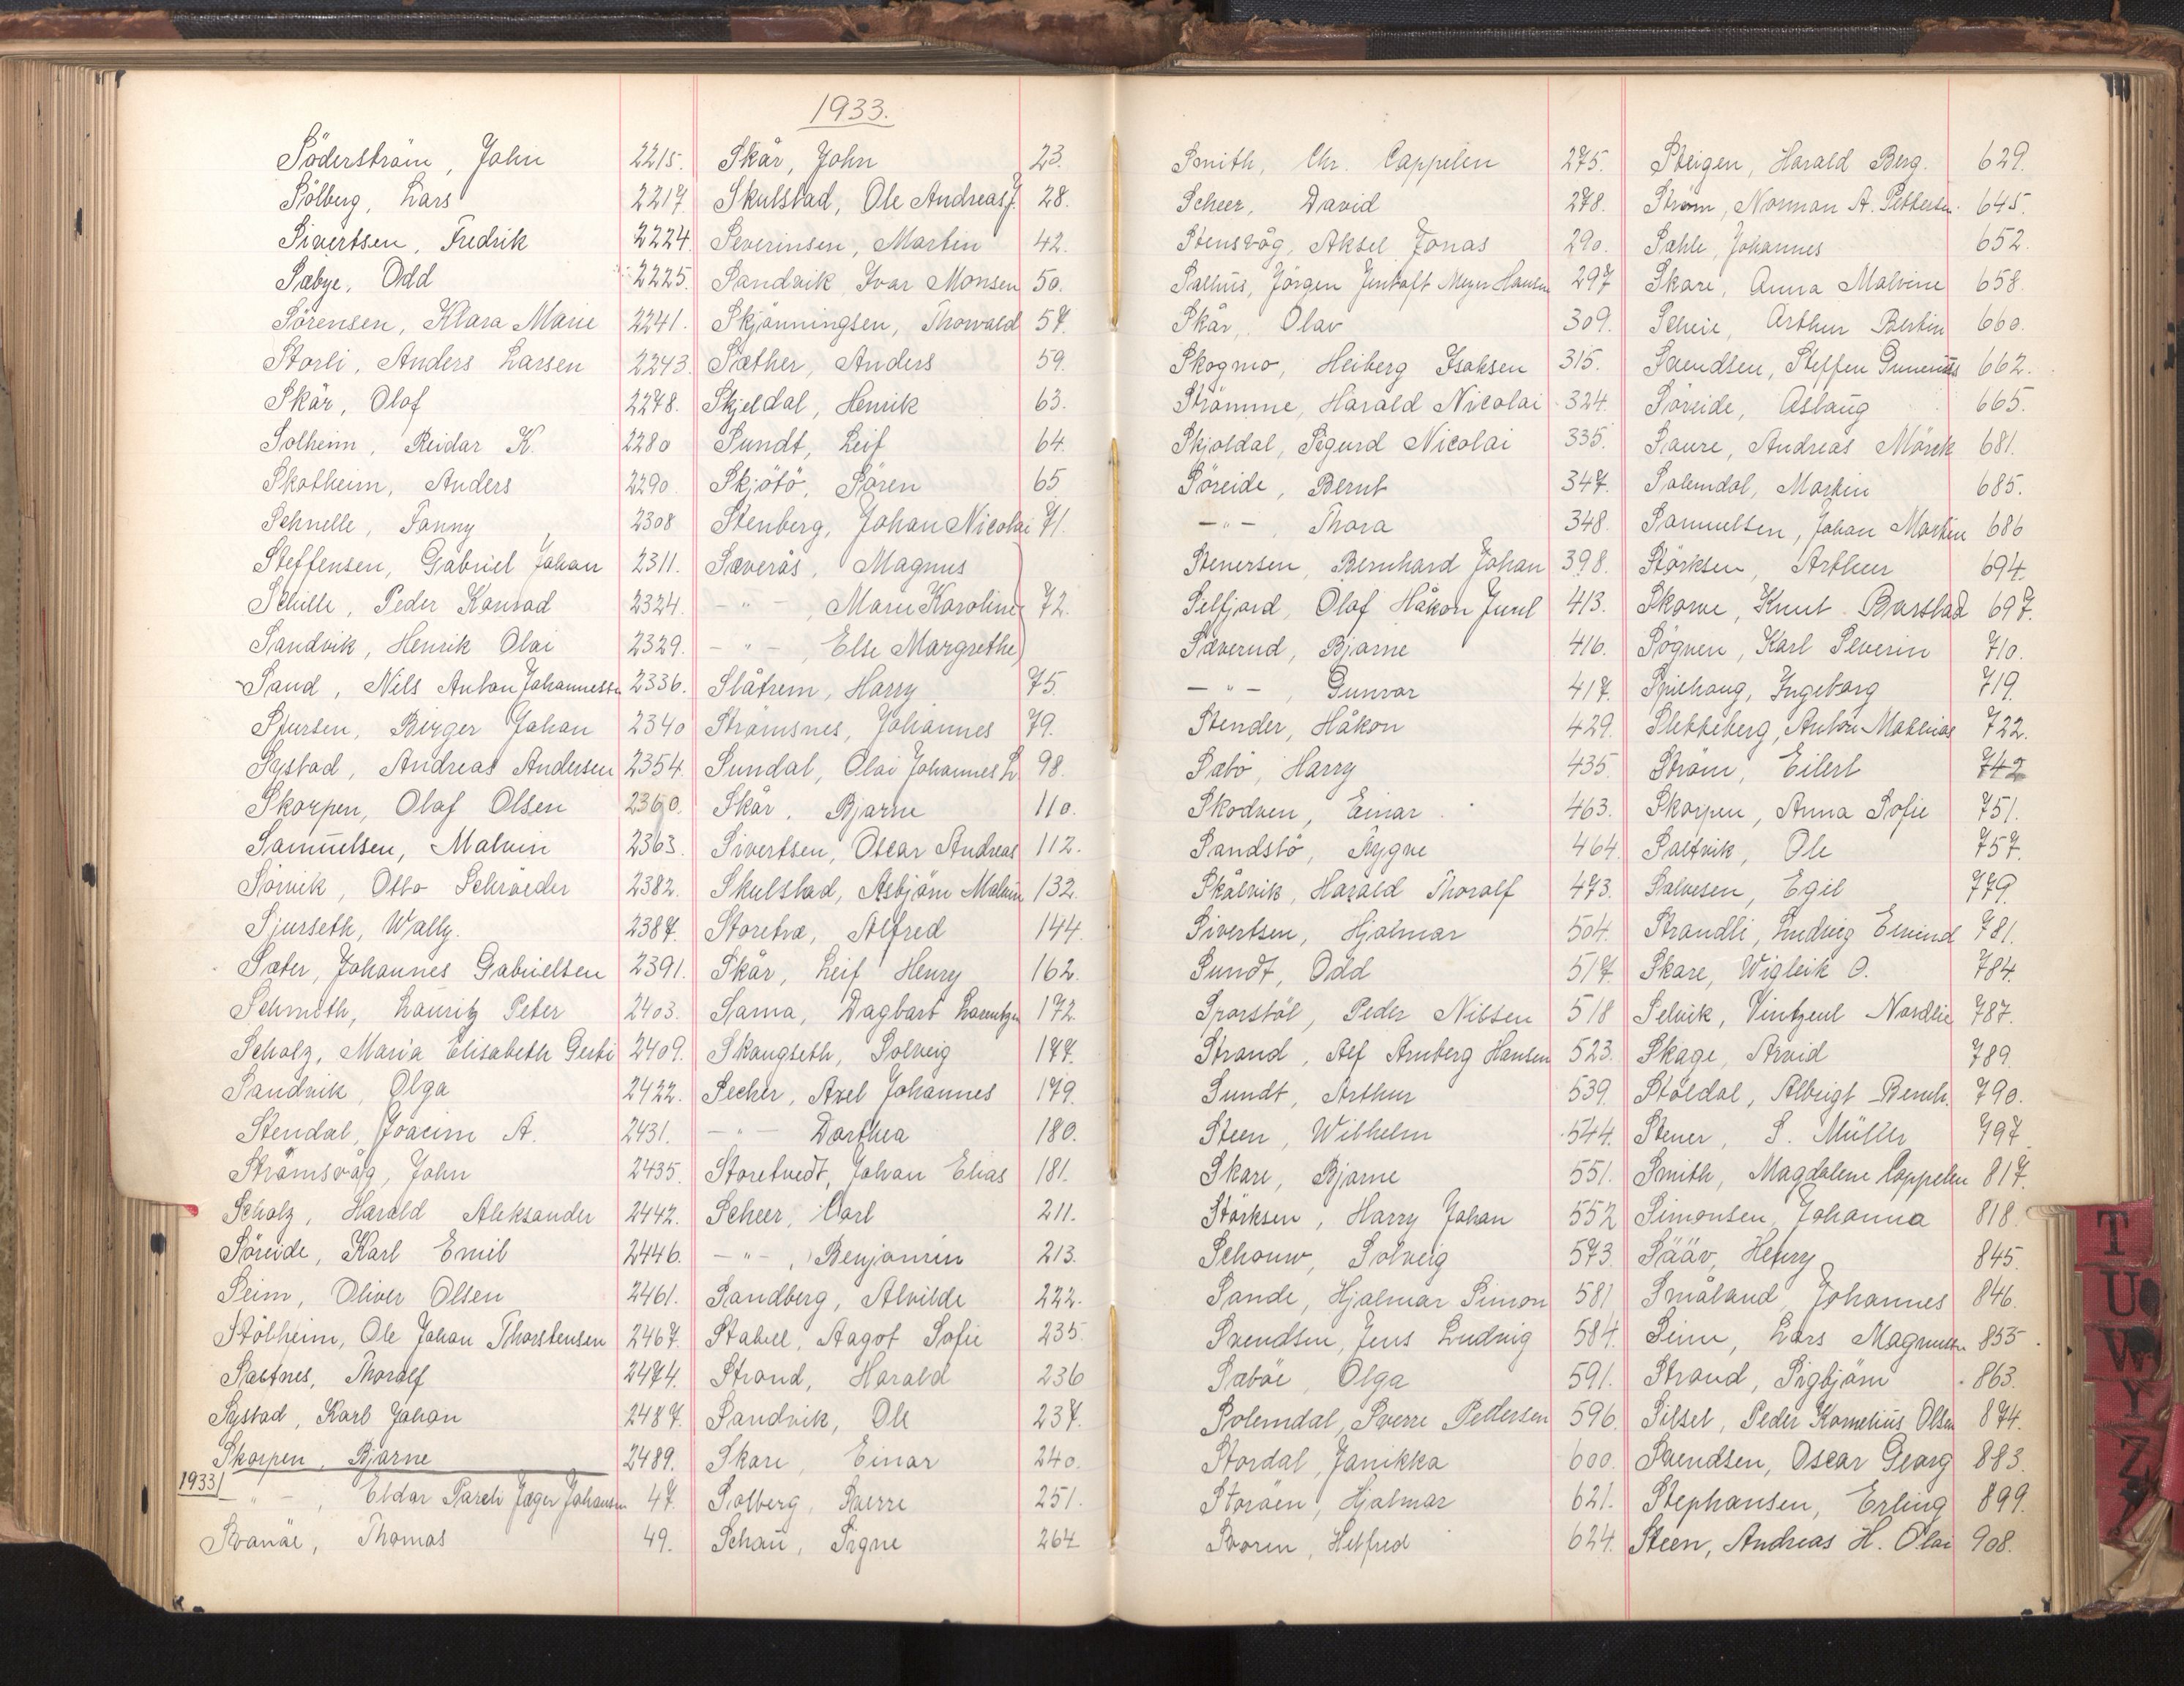 Söderström, John 2215.
Sölberg, Lars 2217
Sivertsen, Fredrik 2224.
Sæbye, Odd 2225.
Sörensen, Klara Marie 2241.
Storli, Anders Larsen 2243.
Skår, Olaf 2278.
Solheim, Reidar K. 2280
Skotheim, Anders 2290.
Schnelle, Fanny 2308
Steffensen, Gabriel Johan 2311.
Schille, Peder Konrad 2324.
Sandvik, Henrik Olai 2329.
Sand, Nils Anton Johannessen 2336.
Sjursen, Birger Johan 2340
Systad, Andreas Andersen 2354.
Skorpen, Olaf Olsen 2360.
Samuelsen, Malvin 2363.
Sörvik, Otto Schröeder 2382.
Sjurseth, Wally. 2387.
Sæter, Johannes Gabrielsen 2391.
Schmith, Lauritz Peter 2403.
Scholz, Maria Elisabeth 2409.
Sandvik, Olga 2422.
Stendal, Joacim A. 2431.
Strömsvåg, John 2435.
Scholz, Harald Aleksander 2442.
Söreide, Karl Emil 2446.
Seim, Oliver Olsen 2461.
Stölheim, Ole Johan Thorstensen 2467.
Saltnes, Thoralf 2474.
Systad, Karl Johan 2487.
Skorpen, Bjarne 2489.
1933/
- " - , Eldar Jæger Johansen 47.
Svanöe, Thomas 49.
1933.
Skår, John 23.
Skulstad, Ole Andreas J. 28.
Severinsen, Martin 42.
Sandvik, Ivar Monsen 50.
Skjönningsen, Thorvald 57.
Sæther, Anders 59.
Skjeldal, Henrik 63.
Sundt, Leif 64.
Skjötö, Sören 65
Stenberg, Johan Nicolai 71.
Sæverås, Magnus
- " - , Marie Karoline 72.
- " - , Else Margrethe
Slåtrem, Harry 75.
Strömsnes, Johannes 79.
Sundal, Olai Johannes L. 98.
Skår, Bjarne 110.
Sivertsen, Oscar Andreas 112.
Skulstad, Asbjörn Malvin 132.
Storetræ, Alfred 144.
Skår, Leif Henry 162.
Sama, Dagbart Larentzen 172
Skaugseth, Solveig 177.
Secher, Axel Johannes 179.
- " - Dorthea 180.
Storetvedt, Johan Elias 181.
Scheer, Carl 211.
- " - , Benjamin 213.
Sandberg, Alvilde 222.
Stabell, Aagot Sofie 235
Strand, Harald 236
Sandvik, Ole 237.
Skare, Einar 240.
Solberg, Sverre 251.
Schau, Signe 264
Smith, Chr. Cappelen 275.
Scheer, David 278.
Stensvåg, Aksel Jonas 290.
Salhus, Jörgen Jentoft Meyer Hansen 297
Skår, Olav 309.
Skogmo, Heiberg Isaksen 315.
Strömme, Harald Nicolai 324.
Skjoldal, Sigurd Nicolai 335.
Söreide, Bernt 347.
- " - , Thora 348.
Stenersen, Bernhard Johan 398.
Selfjord, Olaf Håkon Juul 413.
Sæverud, Bjarne 416.
- " - , Gunvor 417.
Stender, Håkon 429.
Sæbö, Harry 435.
Skodven, Einar 463.
Sandslö, Trygve 464.
Skålvik, Harald Thoralf 473.
Sivertsen, Hjalmar 504.
Sundt, Odd 517.
Sporstöl, Peder Nilsen 518
Strand, Alf Arnberg Hansen 523.
Sundt, Arthur 539.
Steen, Wilhelm 544.
Skare, Bjarne 551.
Störksen, Harry Johan 552
Schouw, Solveig 573.
Sande, Hjalmar Simon 581
Svendsen, Jens Ludvig 584.
Sæböe, Olga 591.
Solemdal, Sverre Pettersen 596.
Stordal, Janikka 600.
Storöen, Hjalmar 621.
Svoren, Helfred 624.
Steigen, Harald Berg. 629.
Ström, Norman A. Pettersen. 645.
Sahle, Johannes 652.
Skare, Anna Malvine 658.
Scheie, Arthur Bertin 660.
Svendsen, Steffen Gunerius 662.
Söreide, Aslaug 665.
Saure, Andreas Mörck 681.
Solemdal, Martin 685.
Samuelsen, Johan Martin 686
Störksen, Arthur 694.
Skorve, Knut Barstad 697.
Sögnen, Karl Severin 710.
Spilhaug, Ingeborg 719.
Sletteberg, Anton Mathias 722.
Ström, Eilert 742
Skorpen, Anna Sofie 751.
Saltvik, Ole 757.
Salvesen, Egil 779.
Strandli, Ludvig Eivind 781.
Skare, Wigleik O. 784.
Selvik, Vintzent Nordlie 787.
Skage, Arvid 789.
Stöldal, Albrigt Bernh. 790.
Stener, S. Müller 797.
Smith, Magdalene Cappelen 817.
Simonsen, Johanna 818.
Sääv, Henry 845.
Småland, Johannes 846.
Seim, Lars Magnussen 855
Strand, Sigbjörn 863.
Silset, Peder Kornelius Olsen 874.
Svendsen, Oscar Georg 883.
Stephansen, Erling 899.
Steen, Andreas H. Olai 908.
T
U
W
Y
Z